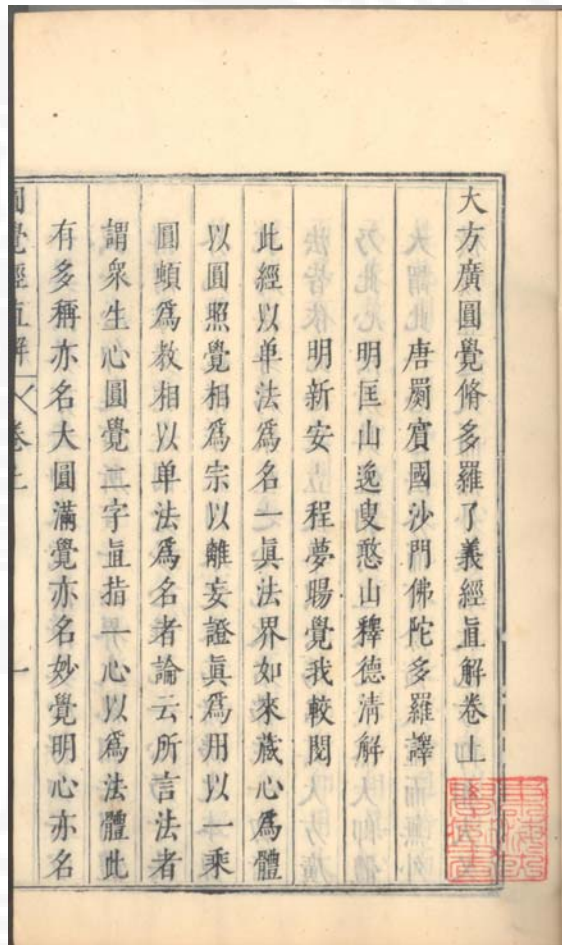 大方廣圓覺脩多羅了義經直解卷上
唐罽賓國沙門佛陀多羅譯
明匡山逸叟憨山釋德清解
明新安 程夢暘覺我較閱
此經以单法爲名一眞法界如來藏心爲體
以圓照覺相爲宗以離妄證眞爲用以一乘
圓頓爲教相以单法爲名者論云所言法者
謂衆生心圓覺二字直指一心以爲法體此
有多稱亦名大圓滿覺亦名妙覺明心亦名
圓覺經直解 卷上 一